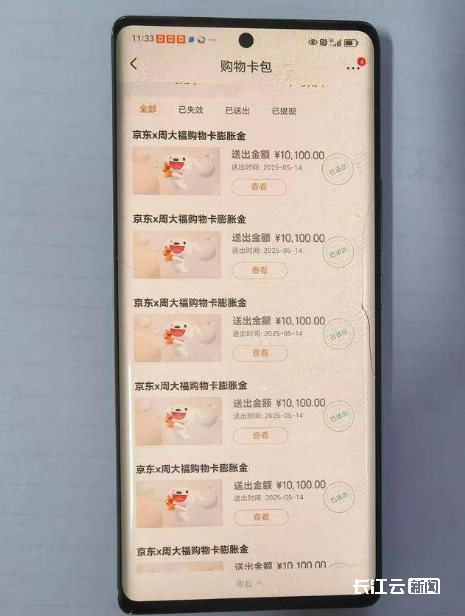 11:33
购物卡包
4
全部 已失效 已送出 已提现
京东x周大福购物卡膨胀金
送出金额 ¥10,100.00
送出时间: 2025-05-14
已送出
查看
京东x周大福购物卡膨胀金
送出金额 ¥10,100.00
送出时间: 2025-05-14
已送出
查看
京东x周大福购物卡膨胀金
送出金额 ¥10,100.00
送出时间: 2025-05-14
已送出
查看
京东x周大福购物卡膨胀金
送出金额 ¥10,100.00
送出时间: 2025-05-14
已送出
查看
京东x周大福购物卡膨胀金
送出金额 ¥10,100.00
送出时间: 2025-05-14
已送出
查看
京东x周大福购物卡膨胀金
送出金额 ¥10,100.00
收起
长江云新闻